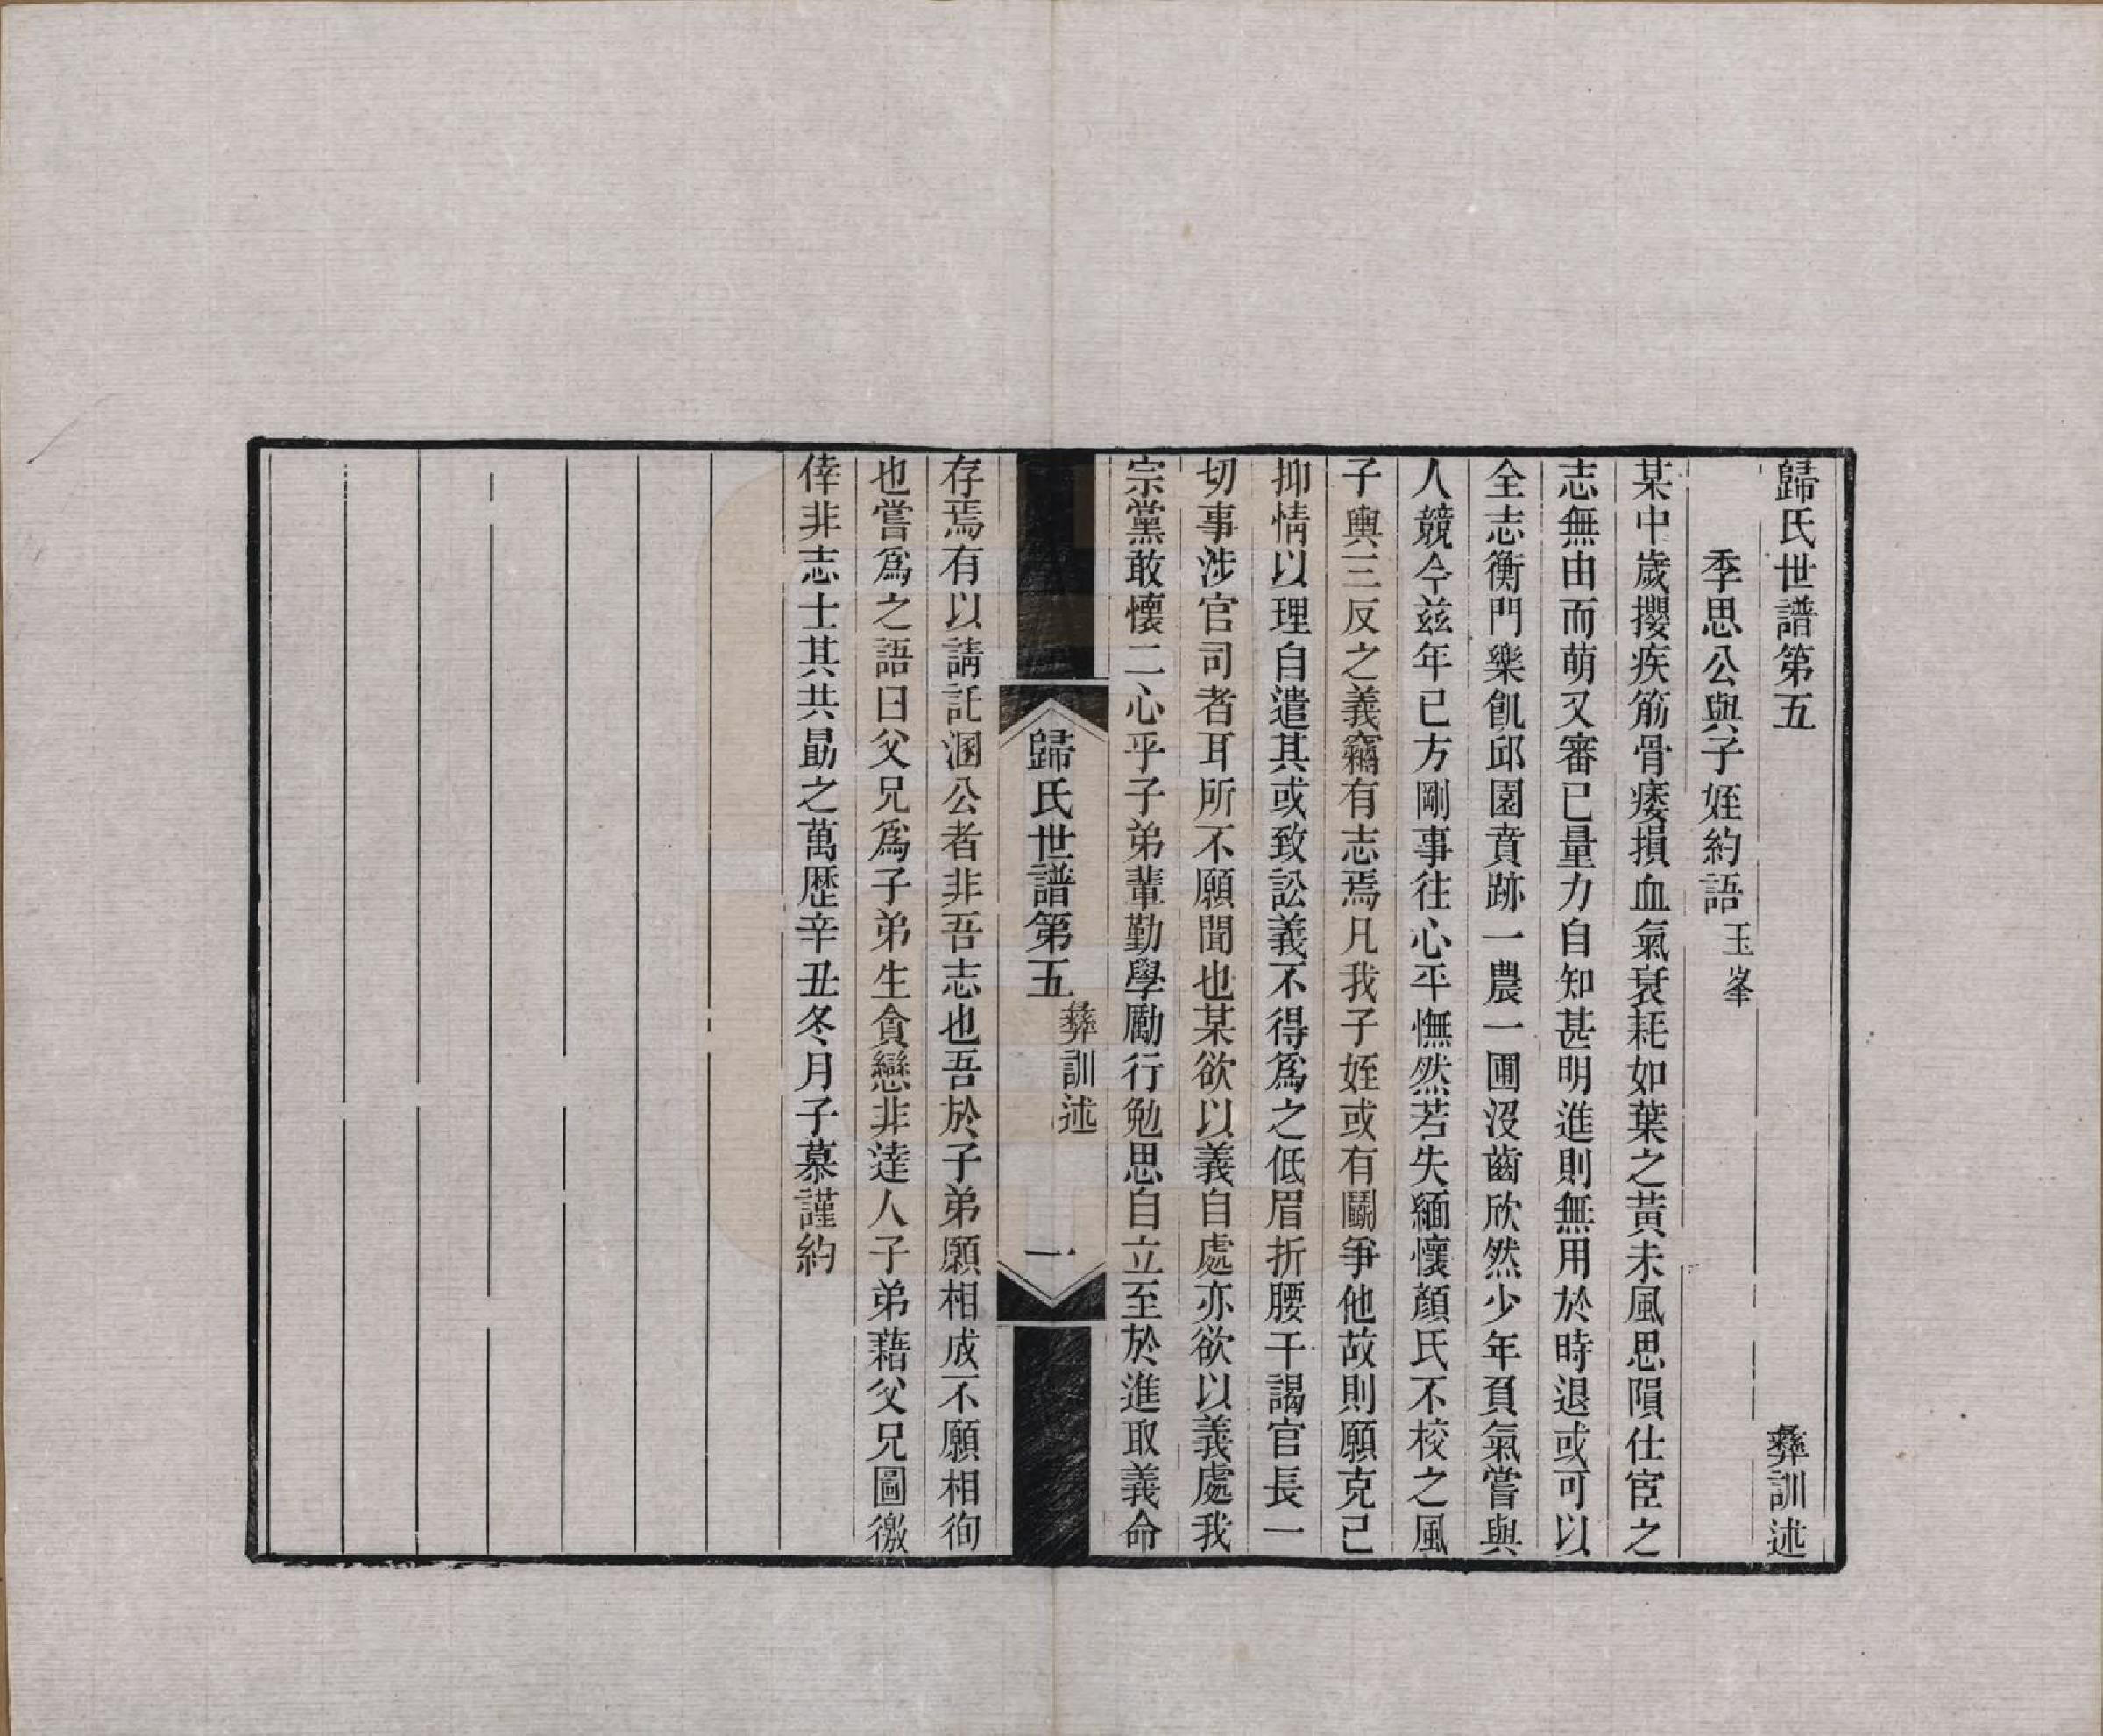 歸氏世譜第五　彝訓述
季思公與子姪約語　玉峯
某中歲攖疾筋骨痿損血氣衰耗如葉之黃未風思隕仕宦之
志無由而萌又審已量力自知甚明進則無用於時退或可以
全志衡門樂飢邱園賁跡一農一圃沒齒欣然少年負氣嘗與
人競今茲年已方剛事往心平憮然若失緬懷顏氏不校之風
子輿三反之義竊有志焉凡我子姪或有鬭爭他故則願克己
抑情以理自遣其或致訟義不得爲之低眉折腰干謁官長一
切事涉官司者耳所不願聞也某欲以義自處亦欲以義處我
宗黨敢懷二心乎子弟輩勤學勵行勉思自立至於進取義命
歸氏世譜第五　彝訓述　一
存焉有以請託溷公者非吾志也吾於子弟願相成不願相徇
也嘗爲之語曰父兄爲子弟生貪戀非達人子弟藉父兄圖徼
倖非志士其共勗之萬歷辛丑冬月子慕謹約